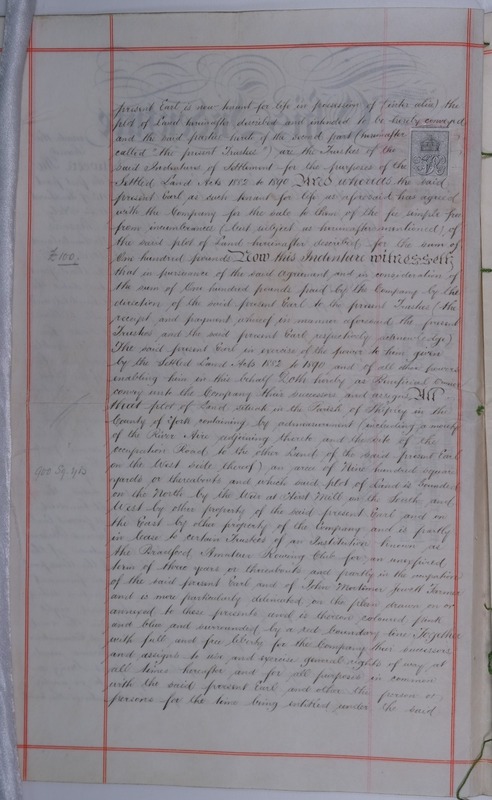 present Earl is now tenant for life in possession of (inter alia) the
plot of Land hereinafter described and intended to be hereby conveyed
and the said parties hereto of the second part (hereinafter
called "the present Trustees") are the Trustees of the
said Indentures of Settlement for the purposes of the
Settled Land Acts 1882 to 1890 And whereas the said
present Earl as such tenant for life as aforesaid has agreed
with the Company for the sale to them of the fee simple free
from incumbrances (but subject as hereinafter mentioned) of
the said plot of Land hereinafter described for the sum of
£100. One hundred pounds Now this Indenture witnesseth
that in pursuance of the said Agreement and in consideration of
the sum of One hundred pounds paid by the Company by the
direction of the said present Earl to the present Trustees (the
receipt and payment whereof in manner aforesaid the present
Trustees and the said present Earl respectively acknowledge)
The said present Earl in exercise of the power to him given
by the Settled Land Acts 1882 to 1890 and of all other powers
enabling him in this behalf Doth hereby as Beneficial Owner
convey unto the Company their successors and assigns All
that plot of Land situate in the Parish of Shipley in the
County of York containing by admeasurement (including a moiety
of the River Aire adjoining thereto and the site of the
occupation Road to the other Land of the said present Earl
900 Sq. yds on the West side thereof) an area of Nine hundred square
yards or thereabouts and which said plot of Land is bounded
on the North by the Weir at Hirst Mill on the South and
West by other property of the said present Earl and on
the East by other property of the Company and is partly
in lease to certain Trustees of an Institution known as
the Bradford Amateur Rowing Club for an unexpired
term of three years or thereabouts and partly in the occupation
of the said present Earl and of John Mortimer Farmer
and is more particularly delineated on the plan drawn on or
annexed to these presents and is thereon coloured pink
and blue and surrounded by a red boundary line Together
with full and free liberty for the Company their successors
and assigns to use and exercise general rights of way at
all times hereafter and for all purposes in common
with the said present Earl and other the person or
persons for the time being entitled under the said